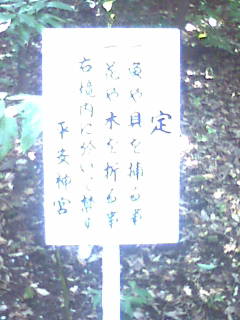 定
一 魚や貝を捕る事
一 花や木を折る事
右境内に於いて禁ず
平安神宮